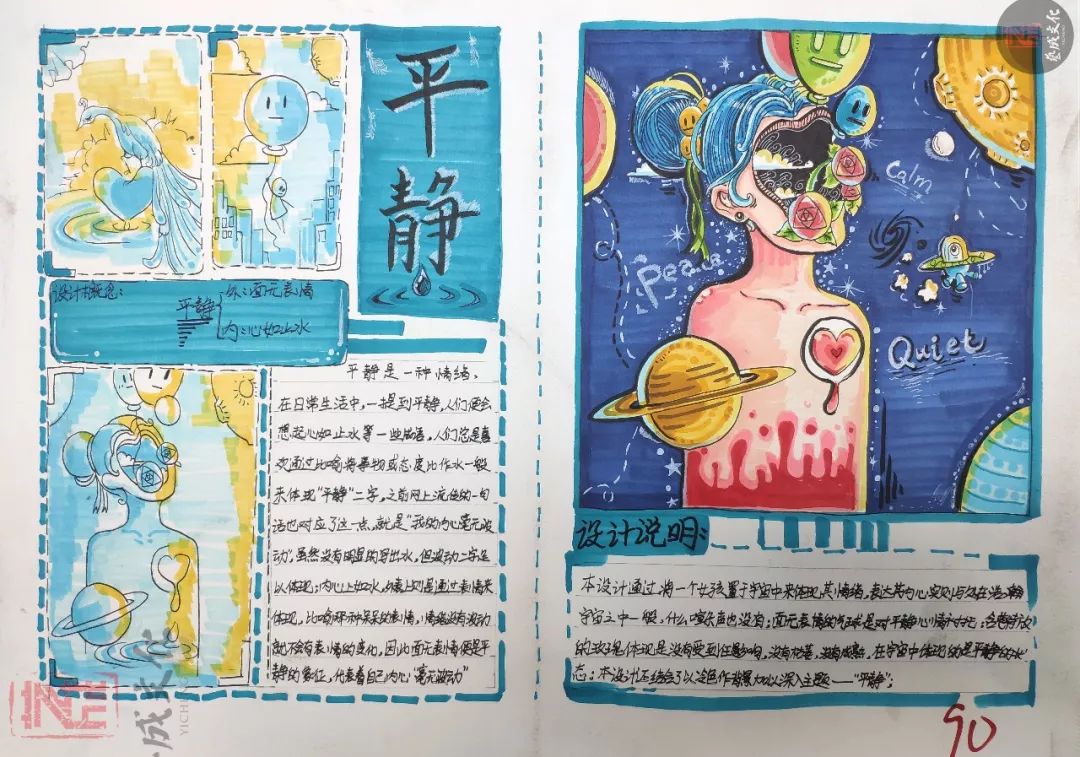 平静
设计概念：
平静
外：面无表情
内：心如止水
平静是一种情绪，
在日常生活中，一提到平静，人们便会
想起心如止水等一些成语，人们总是喜
欢通过比喻将事物或态度比作水一般
来体现"平静"二字，之前网上流传的一句
话也对应了这一点，就是"我的内心毫无波
动"，虽然没有明显的写出水，但波动二字足
以体现；内心上如水，外表上则是通过表情来
体现，比喻那种呆呆的表情，情绪没有波动
就不会有表情的变化，因此面无表情便是平
静的象征，代表着自己内心"毫无波动"
Calm
Peace
Quiet
设计说明：
本设计通过将一个女孩置于宇宙中来体现其情绪，表达其内心实则与处在浩瀚
宇宙之中一般，什么喧杂声也没有；面无表情的气球是对平静心情的衬托；含苞待放
的玫瑰体现是没有受到任何影响，没有枯萎，没有成熟，在宇宙中体现的是平静的状
态；本设计还结合了以冷色作背景加以深入主题——"平静"；
90
艺成文化
成文化
YICHE